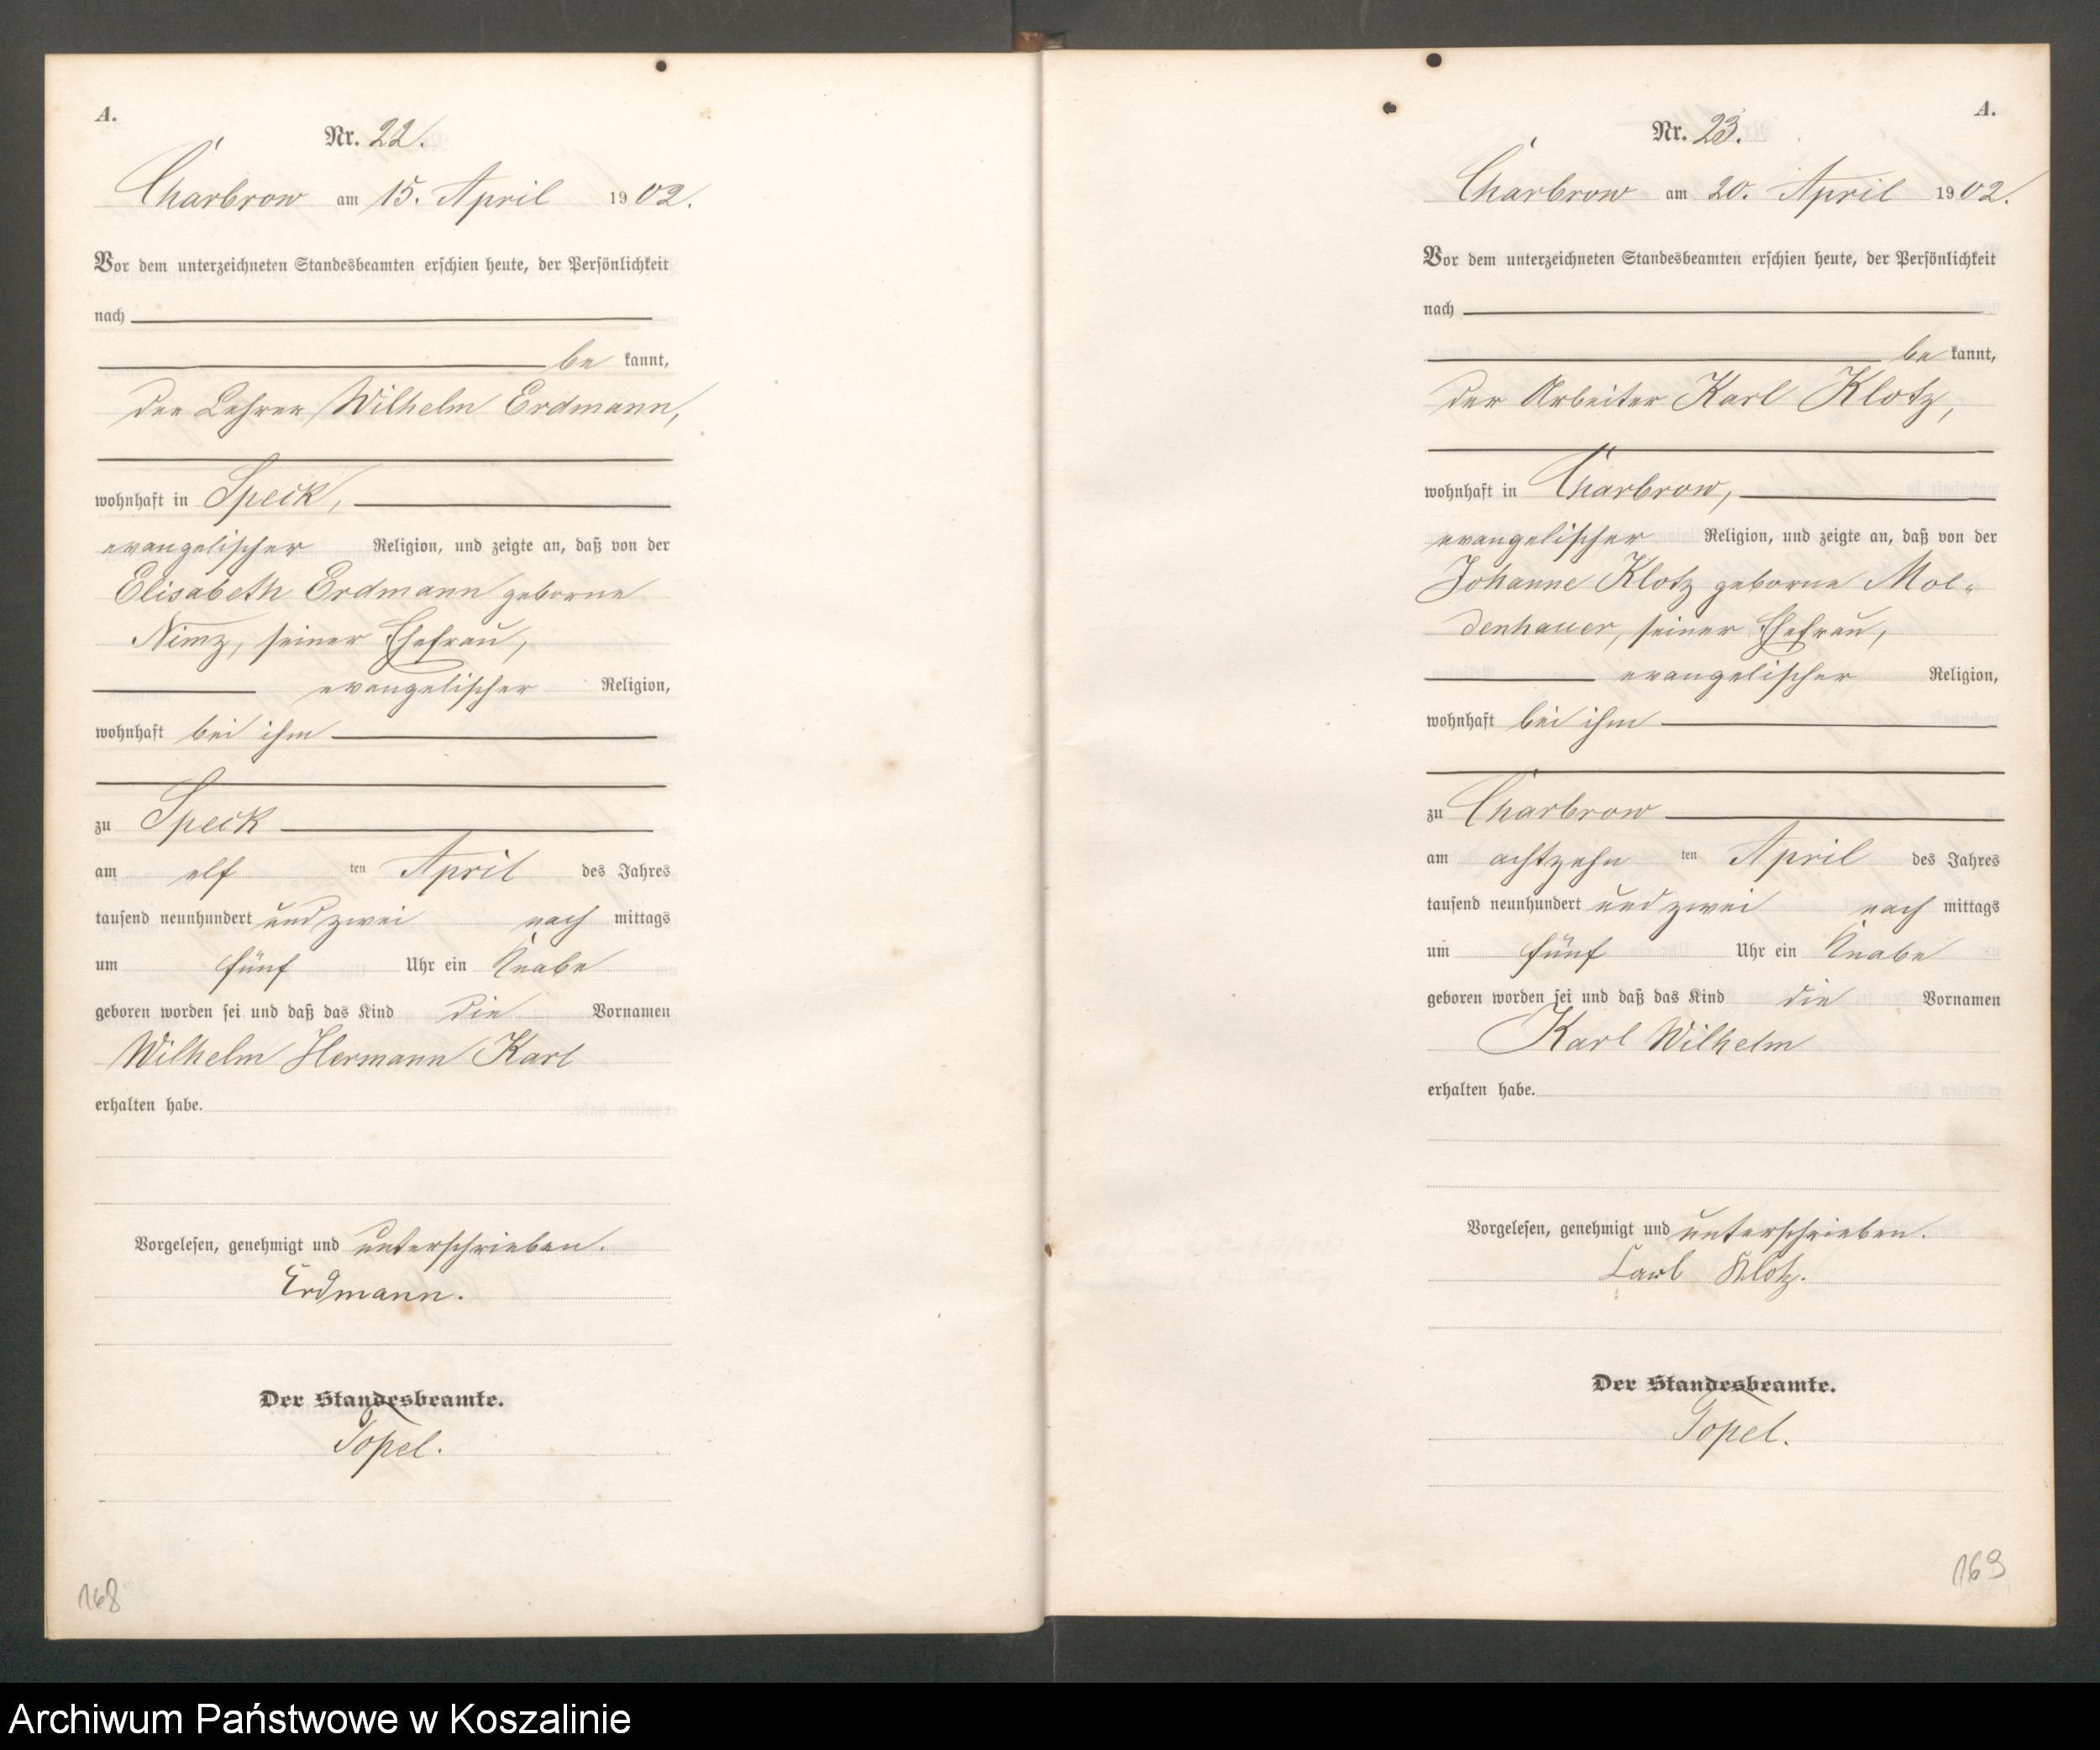 A.
Nr. 22.
Charbrow am 15. April 1902.
Vor dem unterzeichneten Standesbeamten erschien heute, der Persönlichkeit
nach
be kannt,
der Lehrer Wilhelm Erdmann,
wohnhaft in Speck,
evangelischer Religion, und zeigte an, daß von der
Elisabeth Erdmann geborne
Nimz, seiner Ehefrau,
evangelischer Religion,
wohnhaft bei ihm
zu Speck
am elf ten April des Jahres
tausend neunhundert und zwei nach mittags
um fünf Uhr ein Knabe
geboren worden sei und daß das Kind die Vornamen
Wilhelm Hermann Karl
erhalten habe.
Vorgelesen, genehmigt und unterschrieben.
Erdmann.
Der Standesbeamte.
Topel.
168
A.
Nr. 23.
Charbrow am 20. April 1902.
Vor dem unterzeichneten Standesbeamten erschien heute, der Persönlichkeit
nach
be kannt,
der Arbeiter Karl Klotz,
wohnhaft in Charbrow,
evangelischer Religion, und zeigte an, daß von der
Johanne Klotz geborne Mol-
denhauer, seiner Ehefrau,
evangelischer Religion,
wohnhaft bei ihm
zu Charbrow
am achtzehn ten April des Jahres
tausend neunhundert und zwei nach mittags
um fünf Uhr ein Knabe
geboren worden sei und daß das Kind die Vornamen
Karl Wilhelm
erhalten habe.
Vorgelesen, genehmigt und unterschrieben.
Carl Klotz.
Der Standesbeamte.
Topel.
169
Archiwum Państwowe w Koszalinie